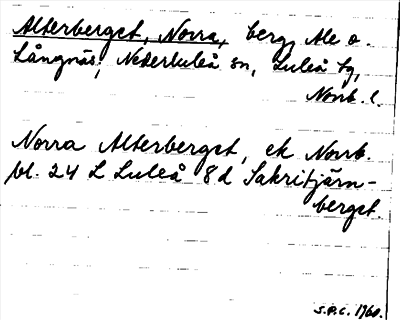 Alterberget, Norra, berg, Ale o.
Långnäs, Nederluleå sn, Luleå tg,
Norrb. l.
Norra Alterberget, ek Norrb.
bl. 24 L Luleå 8d Sakritjärn-
berget.
S.P.C. 1960.